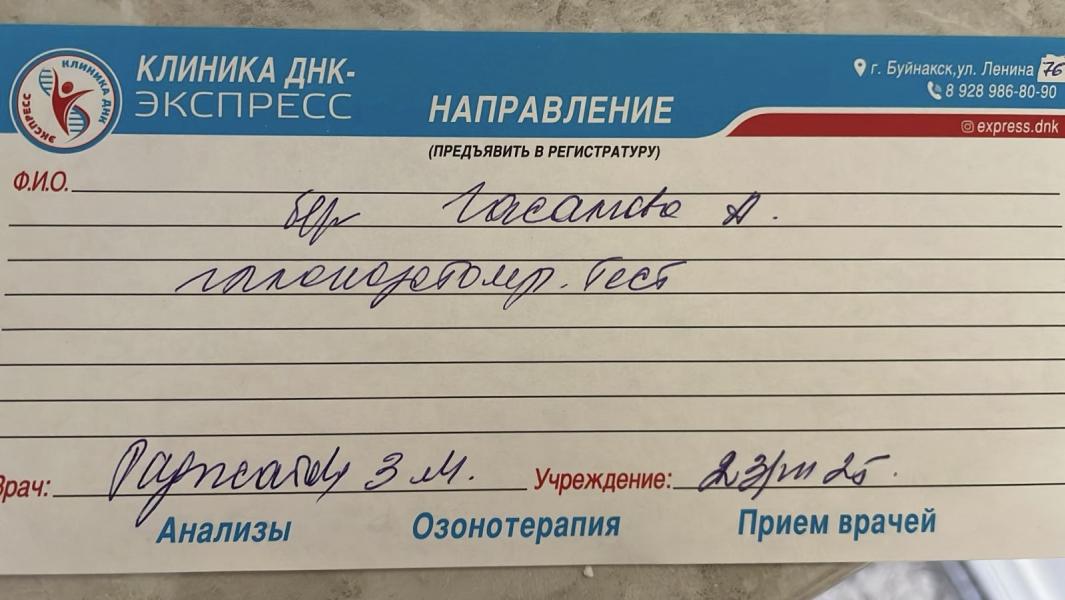 КЛИНИКА ДНК-
ЭКСПРЕСС
КЛИНИКА ДНК ЭКСПРЕСС
НАПРАВЛЕНИЕ
(ПРЕДЪЯВИТЬ В РЕГИСТРАТУРУ)
г. Буйнакск,ул. Ленина 76
8 928 986-80-90
express.dnk
Ф.И.О.
Гасанова А.
тест
Врач: З М. Учреждение: 23/III 25.
Анализы Озонотерапия Прием врачей